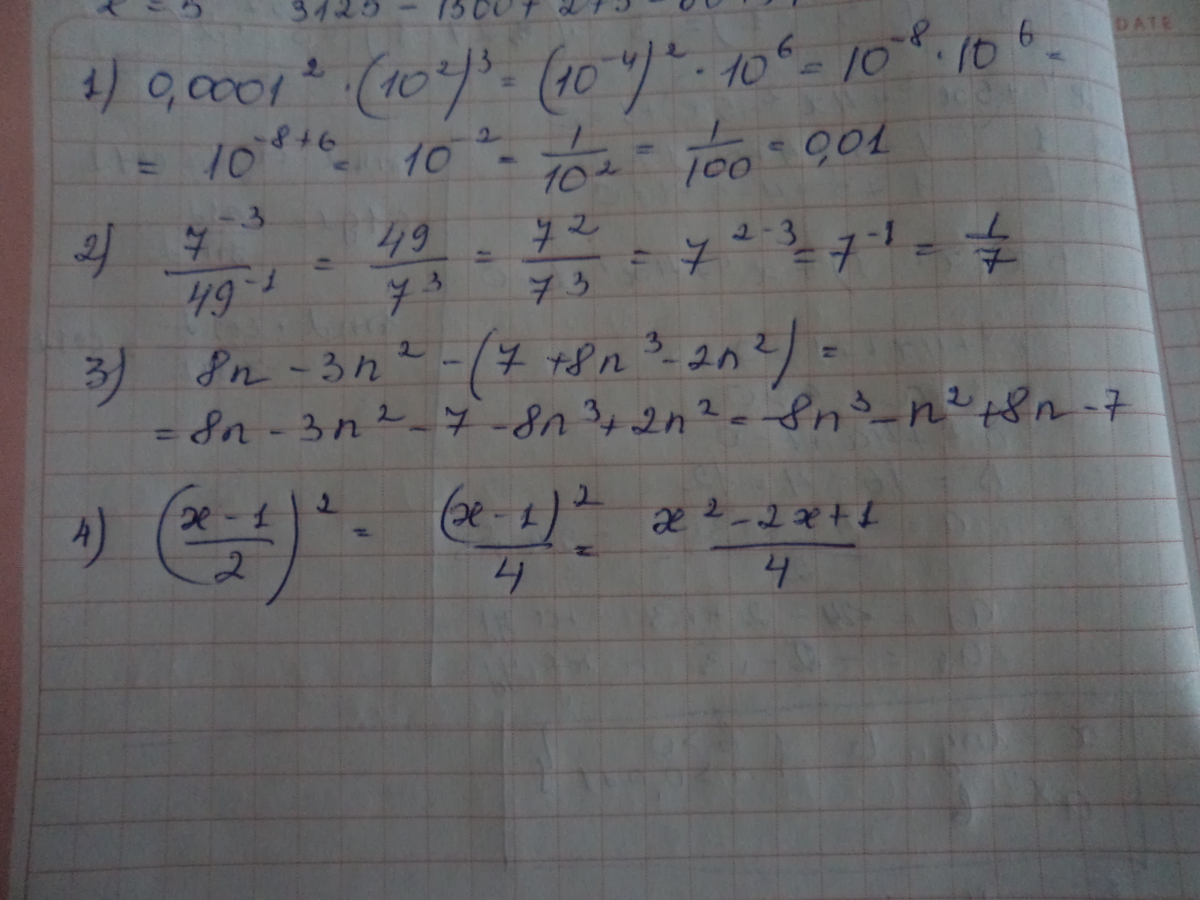 x = 5 3125 - 1500 +
DATE
1) 0,0001² · (10²)³ = (10⁻⁴)² · 10⁶ = 10⁻⁸ · 10⁶ =
= 10⁻⁸⁺⁶ = 10⁻² = 1/10² = 1/100 = 0,01
2) 7⁻³/49⁻¹ = 49/7³ = 7²/7³ = 7²⁻³ = 7⁻¹ = 1/7
3) 8n - 3n² - (7 + 8n³ - 2n²) =
= 8n - 3n² - 7 - 8n³ + 2n² = -8n³ - n² + 8n - 7
4) ((x - 1)/2)² = (x - 1)²/4 = (x² - 2x + 1)/4